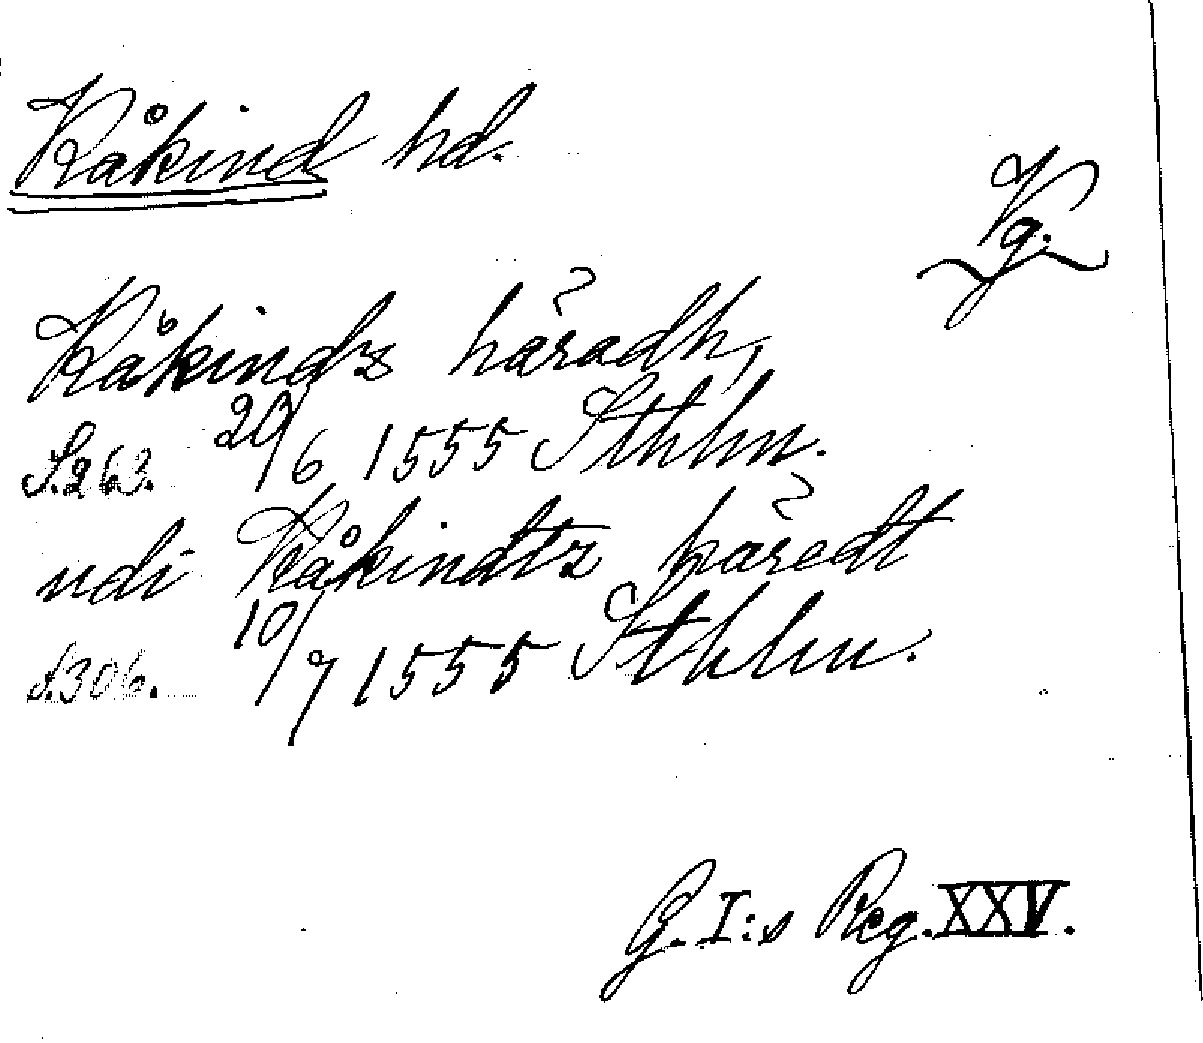 Kåkind hd.
Vg.
Kåkindz häradh,
S. 263. 20/6 1555 Sthlm.
udi Kåkindtz häredt
S. 306. 10/7 1555 Sthlm.
G. I:s Reg. XXV.